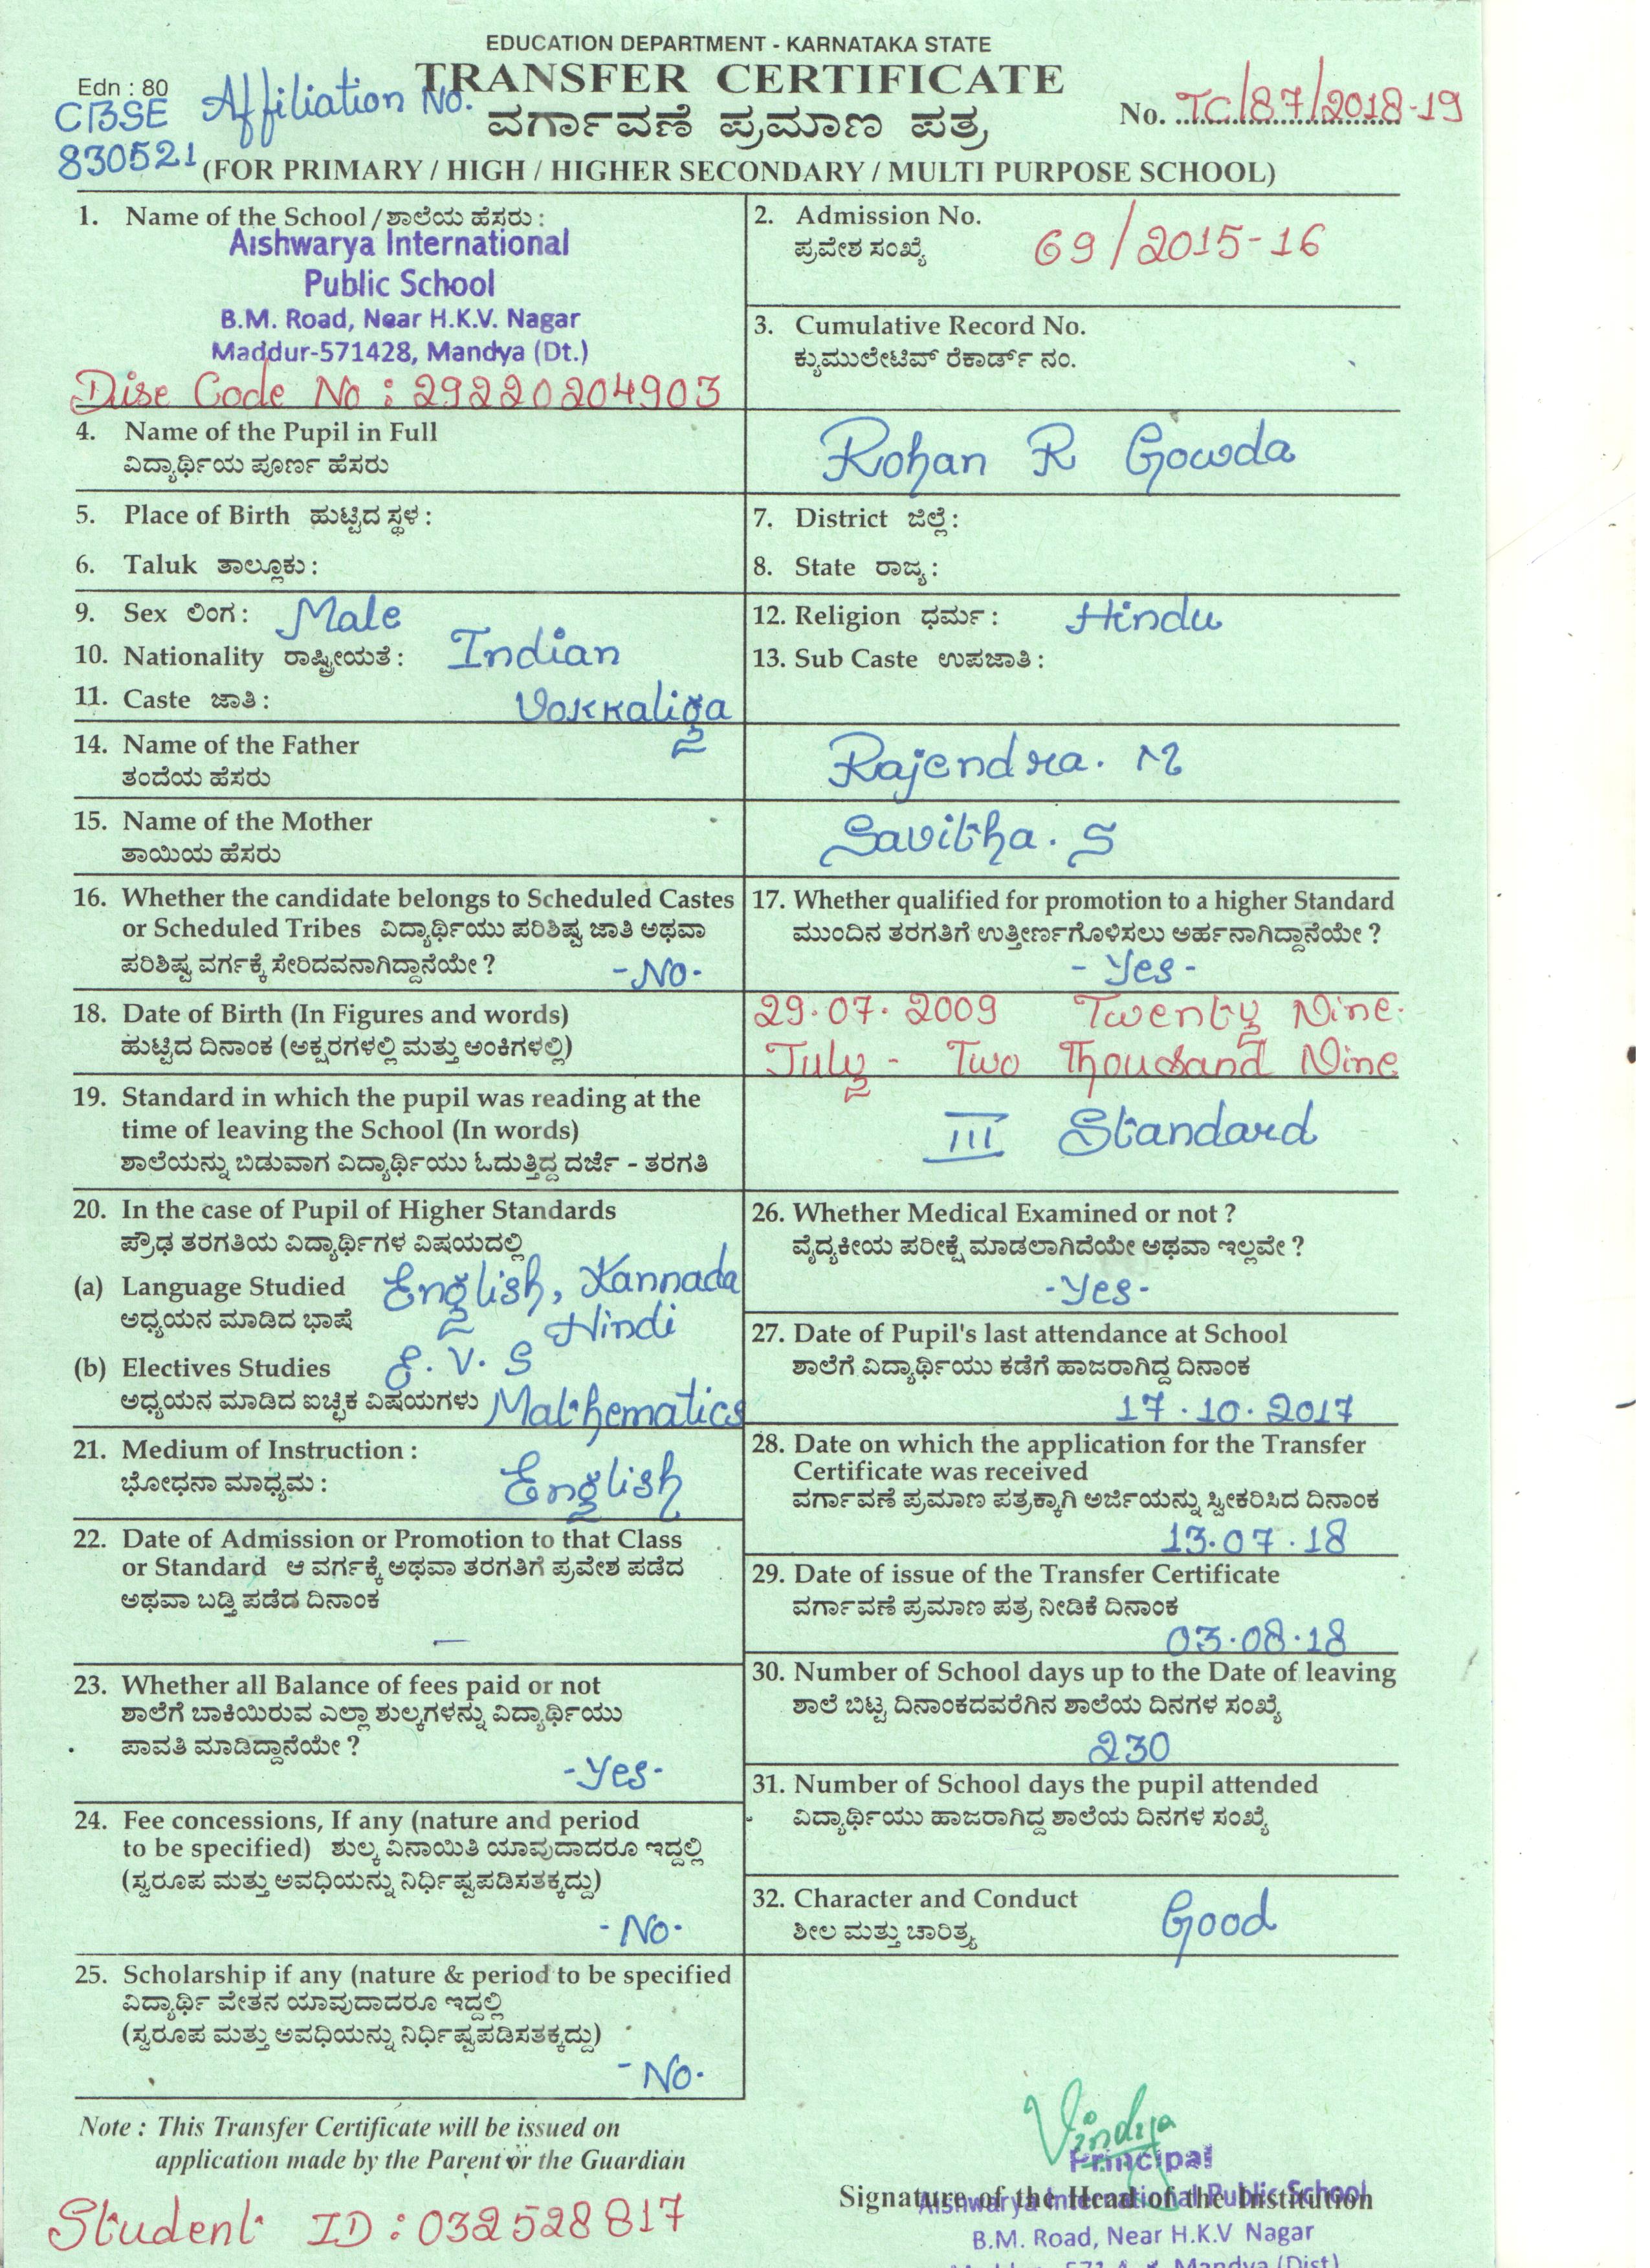 EDUCATION DEPARTMENT - KARNATAKA STATE
Edn : 80
TRANSFER CERTIFICATE
CBSE Affiliation No.
830521
ವರ್ಗಾವಣೆ ಪ್ರಮಾಣ ಪತ್ರ
No. TC/87/2018-19
(FOR PRIMARY / HIGH / HIGHER SECONDARY / MULTI PURPOSE SCHOOL)
1. Name of the School / ಶಾಲೆಯ ಹೆಸರು :
Aishwarya International
Public School
B.M. Road, Near H.K.V. Nagar
Maddur-571428, Mandya (Dt.)
Dise Code No : 29220204903
2. Admission No.
ಪ್ರವೇಶ ಸಂಖ್ಯೆ 69/2015-16
3. Cumulative Record No.
ಕ್ಯುಮುಲೇಟಿವ್ ರೆಕಾರ್ಡ್ ನಂ.
4. Name of the Pupil in Full
ವಿದ್ಯಾರ್ಥಿಯ ಪೂರ್ಣ ಹೆಸರು
Rohan R Gowda
5. Place of Birth ಹುಟ್ಟಿದ ಸ್ಥಳ :
6. Taluk ತಾಲ್ಲೂಕು :
7. District ಜಿಲ್ಲೆ :
8. State ರಾಜ್ಯ :
9. Sex ಲಿಂಗ : Male
10. Nationality ರಾಷ್ಟ್ರೀಯತೆ : Indian
11. Caste ಜಾತಿ : Vokkaliga
12. Religion ಧರ್ಮ : Hindu
13. Sub Caste ಉಪಜಾತಿ :
14. Name of the Father
ತಂದೆಯ ಹೆಸರು
Rajendra. M
15. Name of the Mother
ತಾಯಿಯ ಹೆಸರು
Savitha. S
16. Whether the candidate belongs to Scheduled Castes
or Scheduled Tribes ವಿದ್ಯಾರ್ಥಿಯು ಪರಿಶಿಷ್ಟ ಜಾತಿ ಅಥವಾ
ಪರಿಶಿಷ್ಟ ವರ್ಗಕ್ಕೆ ಸೇರಿದವನಾಗಿದ್ದಾನೆಯೇ ? -No-
17. Whether qualified for promotion to a higher Standard
ಮುಂದಿನ ತರಗತಿಗೆ ಉತ್ತೀರ್ಣಗೊಳಿಸಲು ಅರ್ಹನಾಗಿದ್ದಾನೆಯೇ ?
- Yes -
18. Date of Birth (In Figures and words)
ಹುಟ್ಟಿದ ದಿನಾಂಕ (ಅಕ್ಷರಗಳಲ್ಲಿ ಮತ್ತು ಅಂಕಿಗಳಲ್ಲಿ)
29.07.2009 Twenty Nine.
July - Two Thousand Nine
19. Standard in which the pupil was reading at the
time of leaving the School (In words)
ಶಾಲೆಯನ್ನು ಬಿಡುವಾಗ ವಿದ್ಯಾರ್ಥಿಯು ಓದುತ್ತಿದ್ದ ದರ್ಜೆ - ತರಗತಿ
III Standard
20. In the case of Pupil of Higher Standards
ಪ್ರೌಢ ತರಗತಿಯ ವಿದ್ಯಾರ್ಥಿಗಳ ವಿಷಯದಲ್ಲಿ
(a) Language Studied English, Kannada
ಅಧ್ಯಯನ ಮಾಡಿದ ಭಾಷೆ Hindi
(b) Electives Studies E.V.S
ಅಧ್ಯಯನ ಮಾಡಿದ ಐಚ್ಛಿಕ ವಿಷಯಗಳು Mathematics
21. Medium of Instruction :
ಭೋಧನಾ ಮಾಧ್ಯಮ : English
22. Date of Admission or Promotion to that Class
or Standard ಆ ವರ್ಗಕ್ಕೆ ಅಥವಾ ತರಗತಿಗೆ ಪ್ರವೇಶ ಪಡೆದ
ಅಥವಾ ಬಡ್ತಿ ಪಡೆದ ದಿನಾಂಕ
—
23. Whether all Balance of fees paid or not
ಶಾಲೆಗೆ ಬಾಕಿಯಿರುವ ಎಲ್ಲಾ ಶುಲ್ಕಗಳನ್ನು ವಿದ್ಯಾರ್ಥಿಯು
ಪಾವತಿ ಮಾಡಿದ್ದಾನೆಯೇ ?
-Yes-
24. Fee concessions, If any (nature and period
to be specified) ಶುಲ್ಕ ವಿನಾಯಿತಿ ಯಾವುದಾದರೂ ಇದ್ದಲ್ಲಿ
(ಸ್ವರೂಪ ಮತ್ತು ಅವಧಿಯನ್ನು ನಿರ್ಧಿಷ್ಟಪಡಿಸತಕ್ಕದ್ದು)
-No-
25. Scholarship if any (nature & period to be specified
ವಿದ್ಯಾರ್ಥಿ ವೇತನ ಯಾವುದಾದರೂ ಇದ್ದಲ್ಲಿ
(ಸ್ವರೂಪ ಮತ್ತು ಅವಧಿಯನ್ನು ನಿರ್ಧಿಷ್ಟಪಡಿಸತಕ್ಕದ್ದು)
-No-
26. Whether Medical Examined or not ?
ವೈದ್ಯಕೀಯ ಪರೀಕ್ಷೆ ಮಾಡಲಾಗಿದೆಯೇ ಅಥವಾ ಇಲ್ಲವೇ ?
-Yes-
27. Date of Pupil's last attendance at School
ಶಾಲೆಗೆ ವಿದ್ಯಾರ್ಥಿಯು ಕಡೆಗೆ ಹಾಜರಾಗಿದ್ದ ದಿನಾಂಕ
17.10.2017
28. Date on which the application for the Transfer
Certificate was received
ವರ್ಗಾವಣೆ ಪ್ರಮಾಣ ಪತ್ರಕ್ಕಾಗಿ ಅರ್ಜಿಯನ್ನು ಸ್ವೀಕರಿಸಿದ ದಿನಾಂಕ
13.07.18
29. Date of issue of the Transfer Certificate
ವರ್ಗಾವಣೆ ಪ್ರಮಾಣ ಪತ್ರ ನೀಡಿಕೆ ದಿನಾಂಕ
03.08.18
30. Number of School days up to the Date of leaving
ಶಾಲೆ ಬಿಟ್ಟ ದಿನಾಂಕದವರೆಗಿನ ಶಾಲೆಯ ದಿನಗಳ ಸಂಖ್ಯೆ
230
31. Number of School days the pupil attended
ವಿದ್ಯಾರ್ಥಿಯು ಹಾಜರಾಗಿದ್ದ ಶಾಲೆಯ ದಿನಗಳ ಸಂಖ್ಯೆ
32. Character and Conduct
ಶೀಲ ಮತ್ತು ಚಾರಿತ್ರ್ಯ Good
Note : This Transfer Certificate will be issued on
application made by the Parent or the Guardian
Student ID : 032528817
Vindya
Principal
Signature of the Head of the Institution
Aishwarya International Public School
B.M. Road, Near H.K.V Nagar
Mandya (Dist)